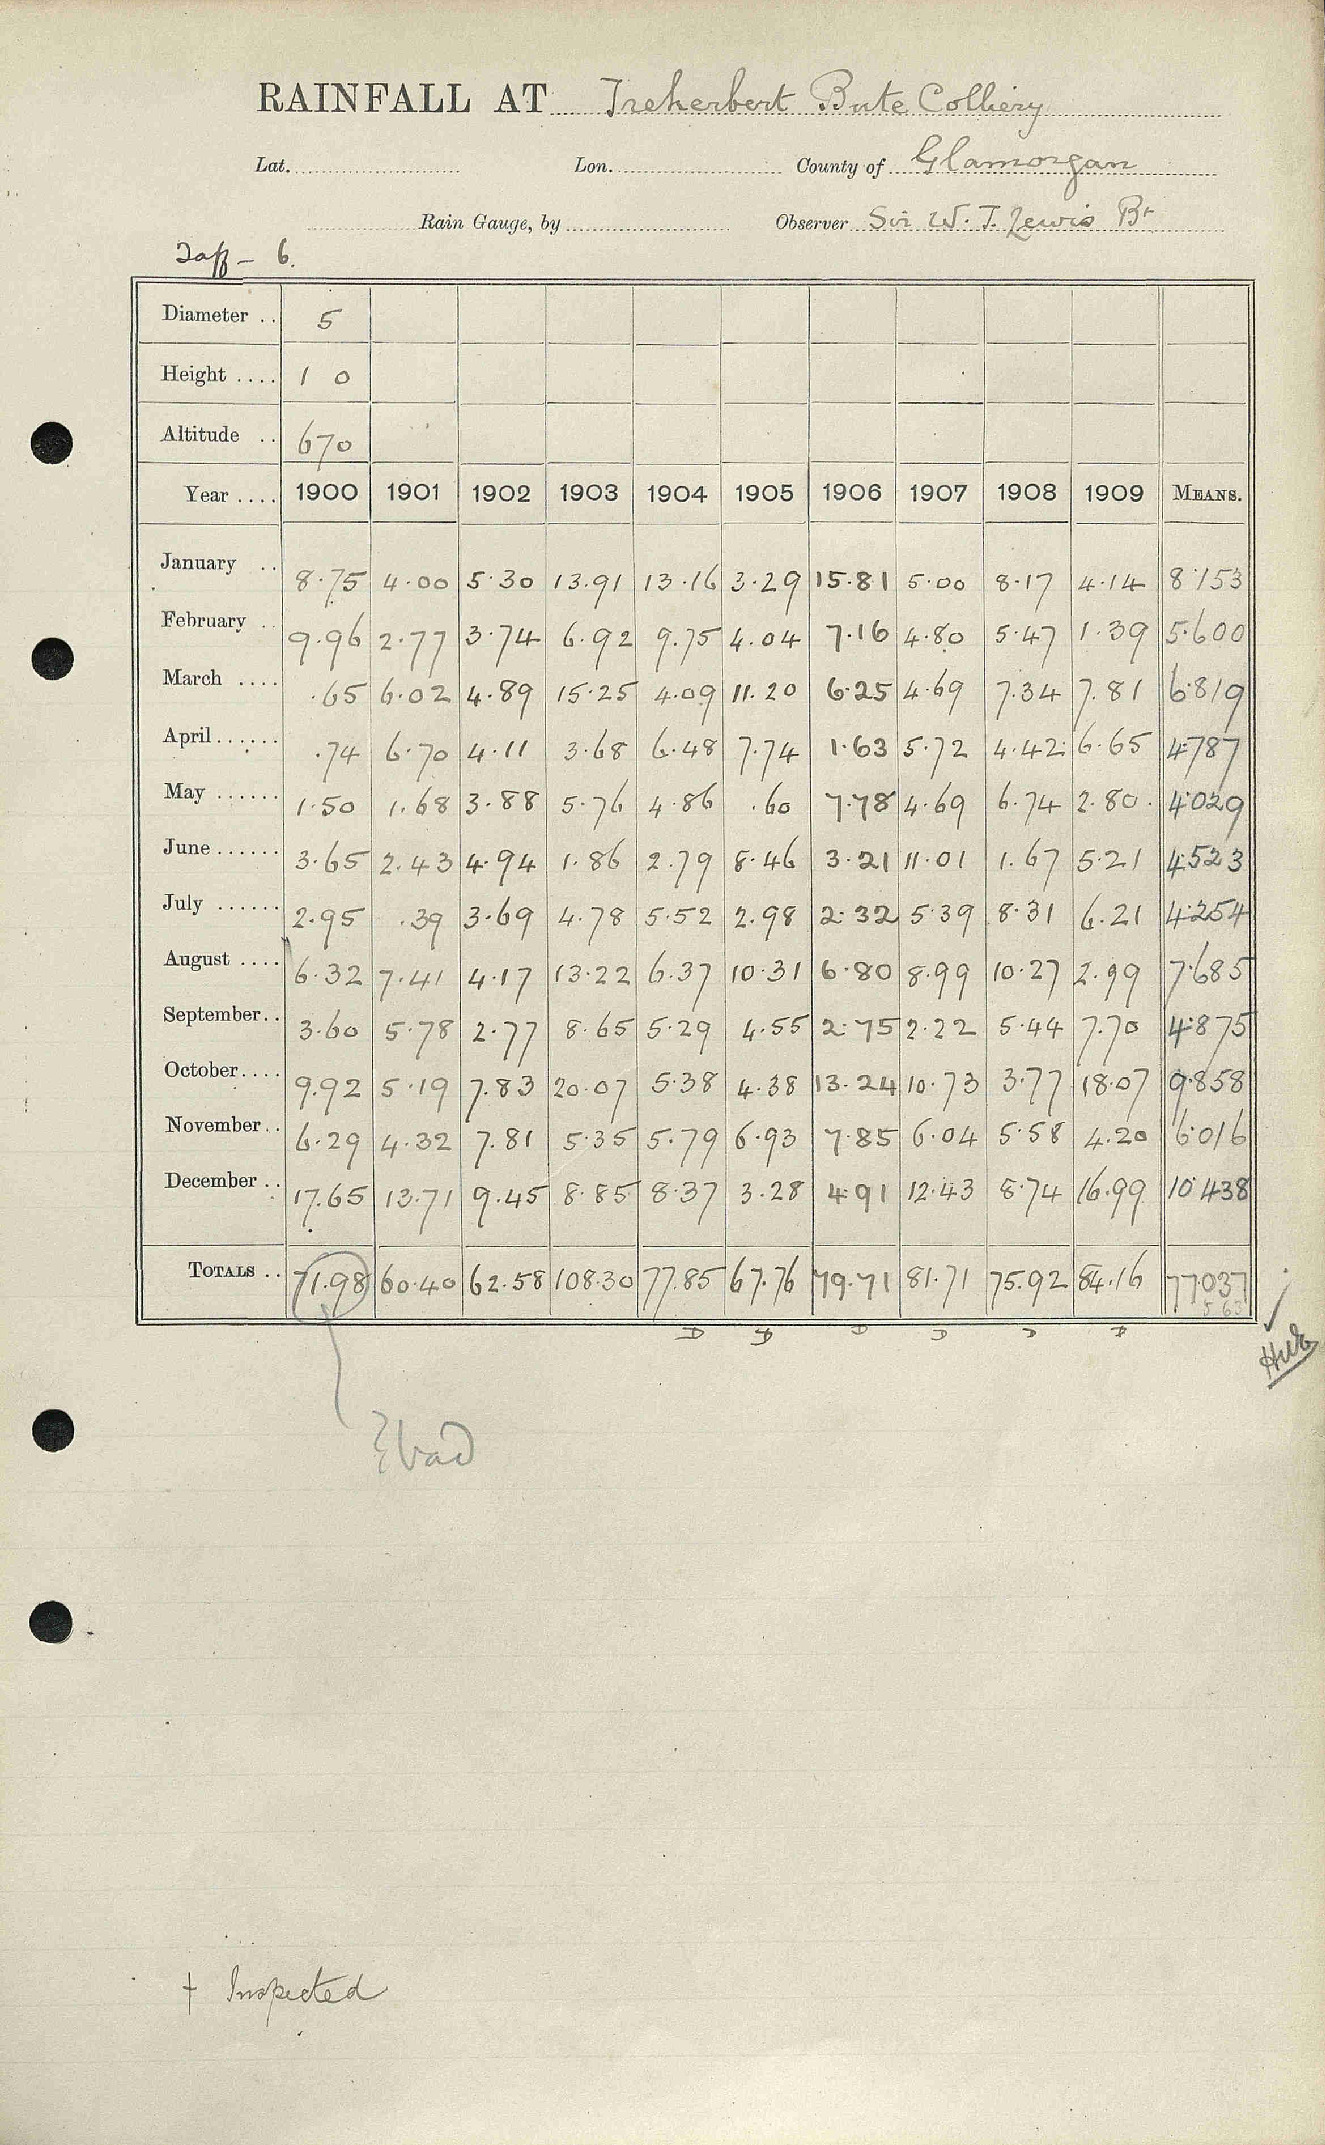 RAINFALL AT Treherbert Bute Colliery
Lat. Lon. County of Glamorgan
Rain Gauge, by Observer Sir W. T. Lewis Bt
Taff - 6.
Diameter .. 5
Height .... 1 0
Altitude .. 670
Year .... 1900 1901 1902 1903 1904 1905 1906 1907 1908 1909 MEANS.
January .. 8.75 4.00 5.30 13.91 13.16 3.29 15.81 5.00 8.17 4.14 8.153
February .. 9.96 2.77 3.74 6.92 9.75 4.04 7.16 4.80 5.47 1.39 5.600
March .... .65 6.02 4.89 15.25 4.09 11.20 6.25 4.69 7.34 7.81 6.819
April ...... .74 6.70 4.11 3.68 6.48 7.74 1.63 5.72 4.42 6.65 4.787
May ...... 1.50 1.68 3.88 5.76 4.86 .60 7.78 4.69 6.74 2.80 4.029
June ...... 3.65 2.43 4.94 1.86 2.79 8.46 3.21 11.01 1.67 5.21 4.523
July ...... 2.95 .39 3.69 4.78 5.52 2.98 2.32 5.39 8.31 6.21 4.254
August .... 6.32 7.41 4.17 13.22 6.37 10.31 6.80 8.99 10.27 2.99 7.685
September.. 3.60 5.78 2.77 8.65 5.29 4.55 2.75 2.22 5.44 7.70 4.875
October.... 9.92 5.19 7.83 20.07 5.38 4.38 13.24 10.73 3.77 18.07 9.858
November.. 6.29 4.32 7.81 5.35 5.79 6.93 7.85 6.04 5.58 4.20 6.016
December .. 17.65 13.71 9.45 8.85 8.37 3.28 4.91 12.43 8.74 16.99 10.438
TOTALS .. 71.98 60.40 62.58 108.30 77.85 67.76 79.71 81.71 75.92 84.16 77.037
D D D D D D
bad
† Inspected